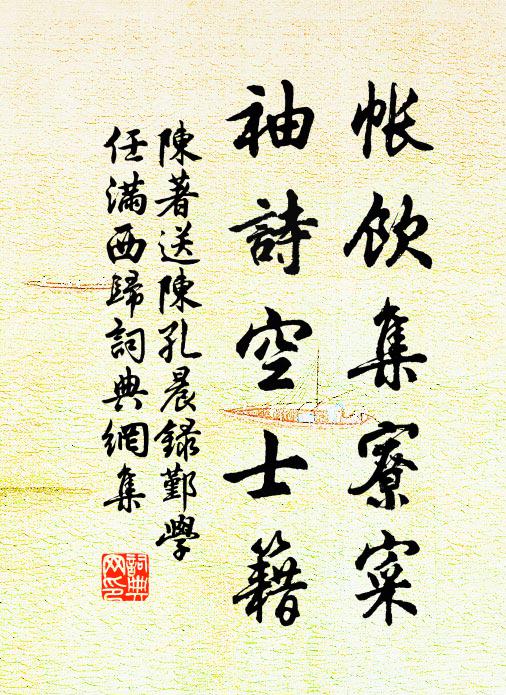 帳飲集寮寀
袖詩空士籍
陳著送陳孔晨錄鄞學
任滿西歸詞典網集
詞典网印